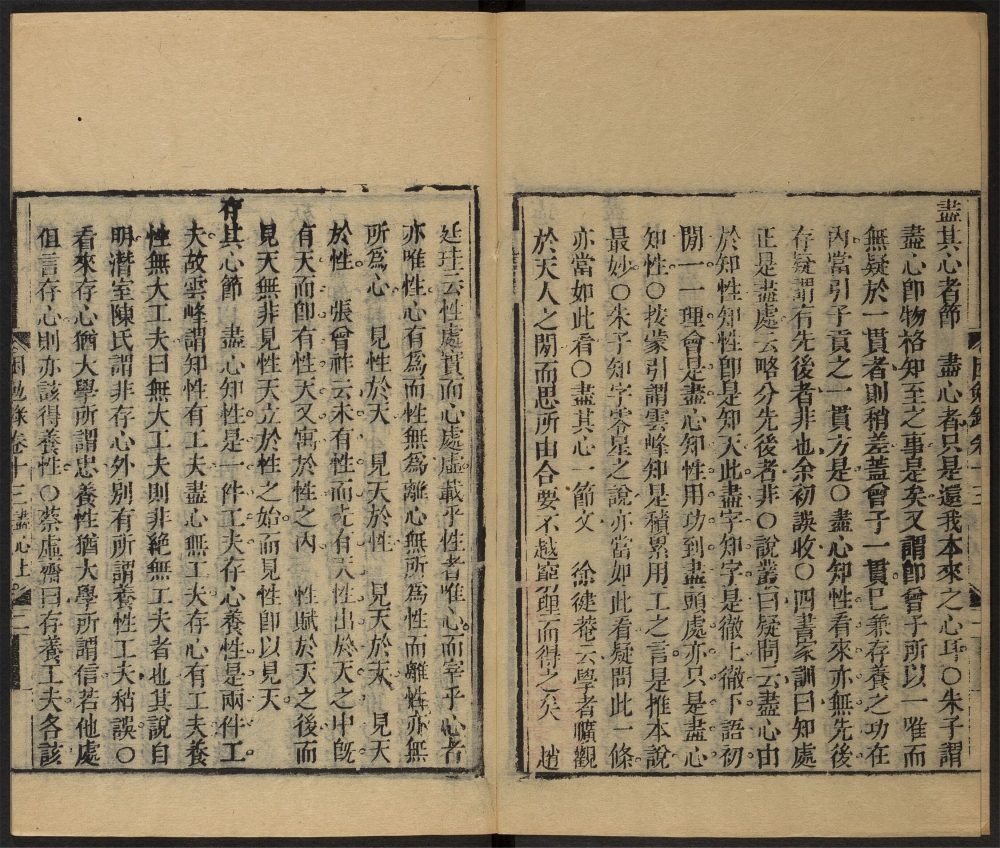 盡其心者節　盡心者只是還我本來之心耳○朱子謂
盡心即物格知至之事是矣又謂即曾子所以一唯而
無疑於一貫者則稍差蓋曾子一貫已兼存養之功在
內當引子貢之一貫方是○盡心知性看來亦無先後
存疑謂有先後者非也余初誤收○四書家訓曰知處
正是盡處云略分先後者非○說叢曰疑問云盡心由
於知性知性即是知天此盡字知字是徹上徹下語初
閒一一理會是盡心知性用功到盡頭處亦只是盡心
知性○按蒙引謂雲峰知是積累用工之言是推本說
最妙○朱子知字零星之說亦當如此看疑問此一條
亦當如此看○盡其心一節文　徐健菴云學者曠觀
於天人之閒而思所由合要不越窮理而得之矣　趙
延珪云性處實而心處虛載乎性者唯心而宰乎心者
亦唯性心有為而性無為離心無所為性而離性亦無
所為心　見性於天　見天於性　見天於天　見天
於性　張曾祚云未有性而先有天性出於天之中旣
有天而即有性天又寓於性之內　性賦於天之後而
見天無非見性天立於性之始而見性即以見天
存其心節　盡心知性是一件工夫存心養性是兩件工
夫故雲峰謂知性有工夫盡心無工夫存心有工夫養
性無大工夫曰無大工夫則非絕無工夫者也其說自
明潛室陳氏謂非存心外別有所謂養性工夫稍誤○
看來存心猶大學所謂忠養性猶大學所謂信若他處
但言存心則亦該得養性○蔡虛齋曰存養工夫各該
困勉錄卷十三 盡心上 二